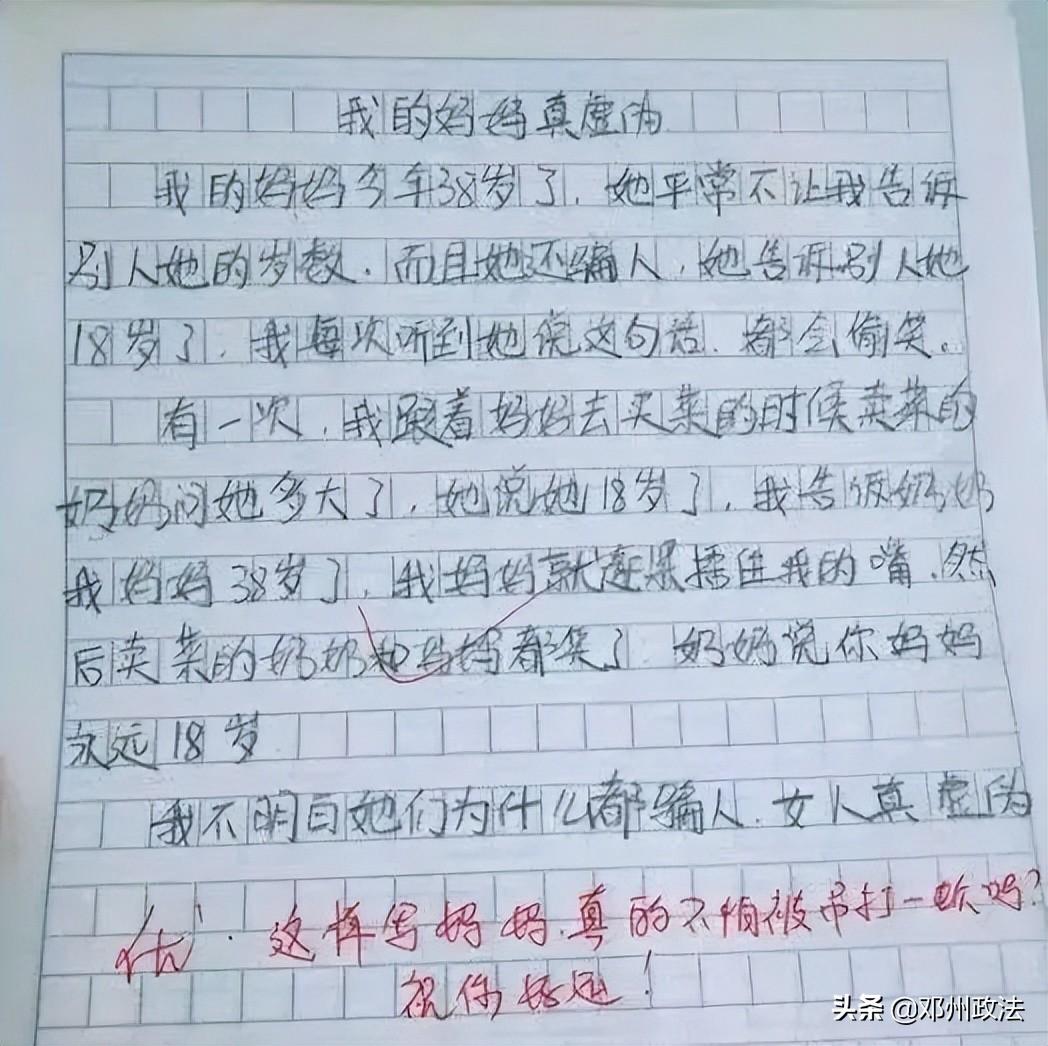 我的妈妈真虚伪
我的妈妈今年38岁了，她平常不让我告诉
别人她的岁数．而且她还骗人，她告诉别人她
18岁了．我每次听到她说这句话．都会偷笑。
有一次，我跟着妈妈去买菜的时候卖菜的
奶奶问她多大了，她说她18岁了，我告饭奶奶
我妈妈38岁了，我妈妈就赶紧捂住我的嘴．然
后卖菜的奶奶和妈妈都笑了 奶奶说你妈妈
永远18岁
我不明白她们为什么都骗人．女人真虚伪
优．这样写妈妈．真的不怕被吊打一顿吗？
祝你好运！
头条 @邓州政法